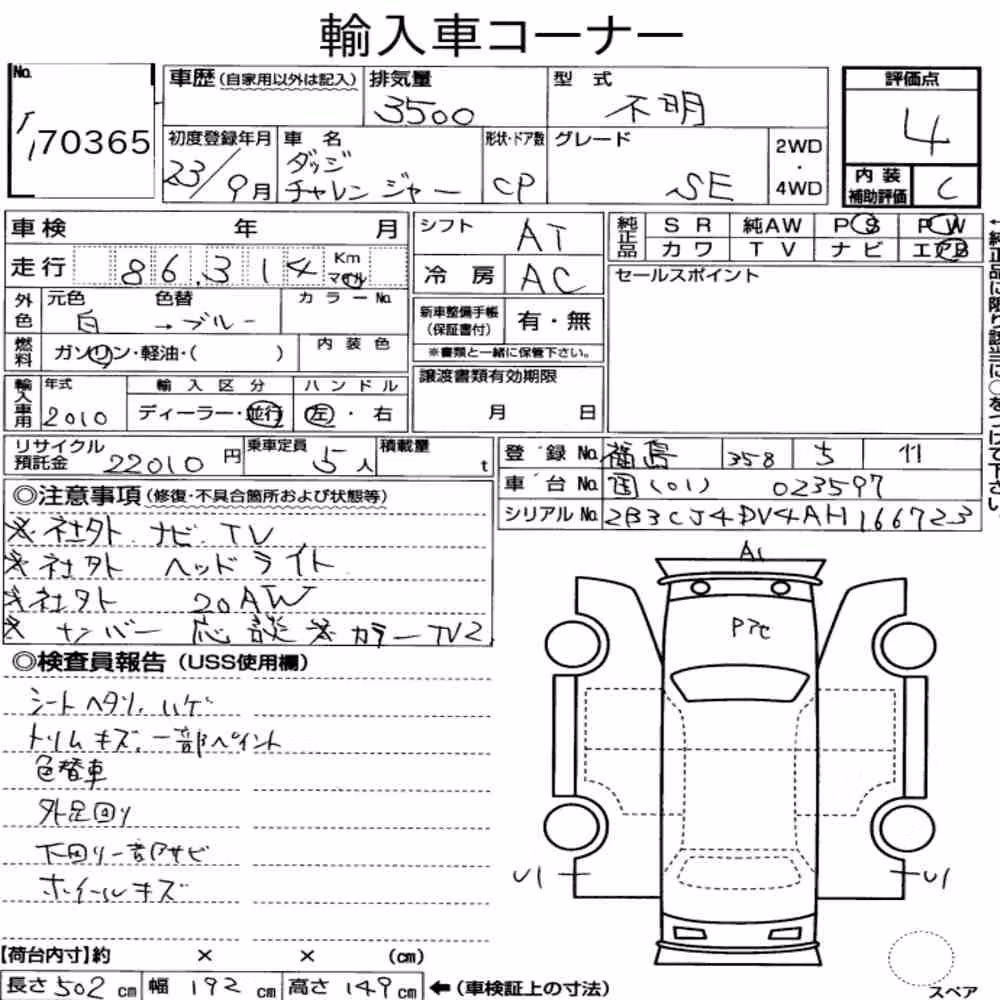 輸入車コーナー
No.
70365
車歴(自家用以外は記入)
排気量
3500
型式
不明
初度登録年月
23/9月
車名
ダッジ
チャレンジャー
形状・ドア数
CP
グレード
SE
2WD
・
4WD
評価点
4
内装
補助評価
C
車検 年 月
走行 86,314 Km
マイル
外色
元色 色替
白 → ブルー
カラーNo.
燃料
ガソリン・軽油・( )
内装色
輸入車用
年式
2010
輸入区分
ディーラー・並行
ハンドル
左・右
シフト
AT
冷房
AC
新車整備手帳
(保証書付)
有・無
※書類と一緒に保管下さい。
譲渡書類有効期限
月 日
純正品
SR 純AW PS PW
カワ TV ナビ エアB
セールスポイント
リサイクル
預託金 22010円
乗車定員
5人
積載量
t
登録No. 福島 358 ち 11
車台No. 国(01) 023597
シリアルNo. 2B3CJ4DV4AH166723
◎注意事項(修復・不具合箇所および状態等)
※社外 ナビ TV
※社外 ヘッドライト
※社外 20AW
※ナンバー 応談 ※カラー
◎検査員報告(USS使用欄)
シートヘタリ、ハゲ
トリムキズ、一部ペイント
色替車
外足回り
下回り一部サビ
ホイールキズ
【荷台内寸】約 × × (cm)
長さ 502 cm 幅 192 cm 高さ 149 cm ←(車検証上の寸法)
A1
U1
U1
スペア